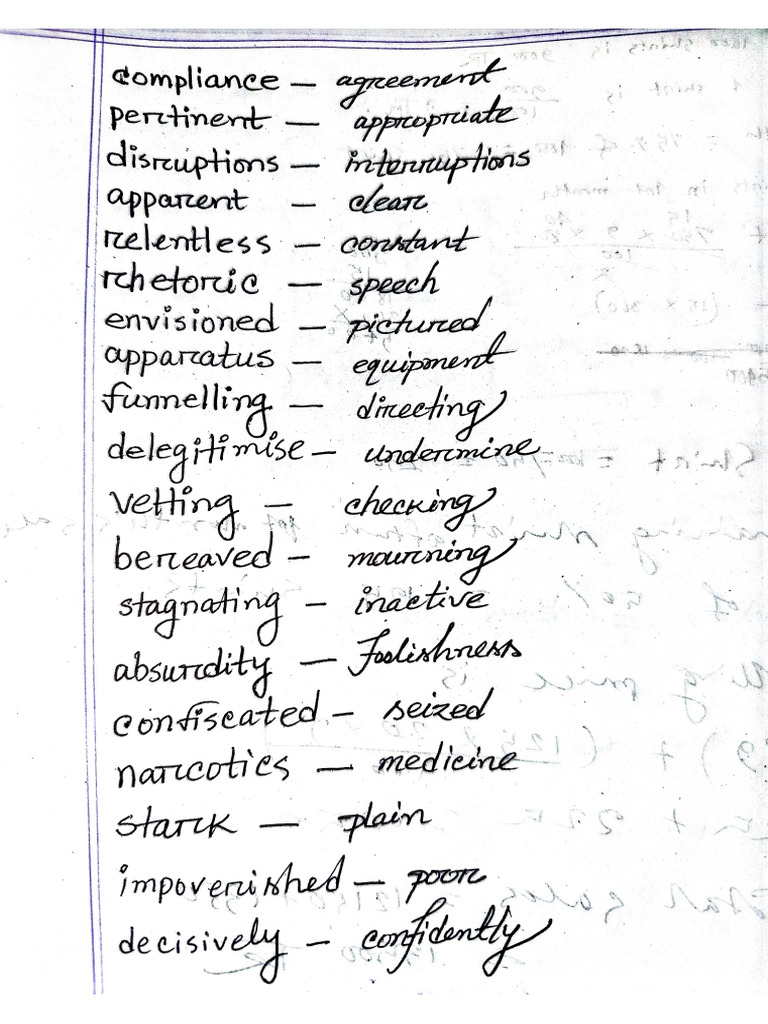 compliance — agreement
pertinent — appropriate
disruptions — interruptions
apparent — clear
relentless — constant
rhetoric — speech
envisioned — pictured
apparatus — equipment
funnelling — directing
delegitimise — undermine
vetting — checking
bereaved — mourning
stagnating — inactive
absurdity — Foolishness
confiscated — seized
narcotics — medicine
stark — plain
impoverished — poor
decisively — confidently